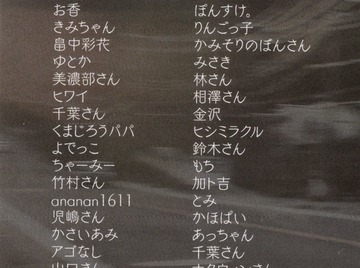 お香
きみちゃん
畠中彩花
ゆとか
美濃部さん
ヒワイ
千葉さん
くまじろうパパ
よでっこ
ちゃーみー
竹村さん
ananan1611
児嶋さん
かさいあみ
アゴなし
山口さん
ぽんすけ。
りんごっ子
かみそりのぼんさん
みさき
林さん
相澤さん
金沢
ヒシミラクル
鈴木さん
もち
加ト吉
とみ
かほぱい
あっちゃん
千葉さん